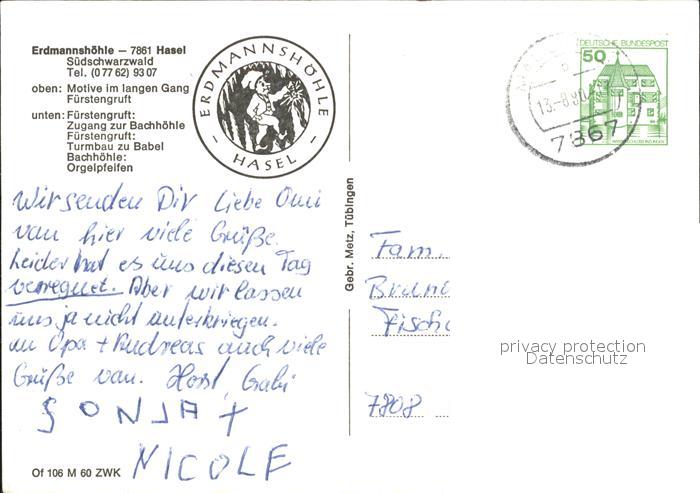 Erdmannshöhle – 7861 Hasel
Südschwarzwald
Tel. (0 77 62) 93 07
oben: Motive im langen Gang
Fürstengruft
unten: Fürstengruft:
Zugang zur Bachhöhle
Fürstengruft:
Turmbau zu Babel
Bachhöhle:
Orgelpfeifen
ERDMANNSHÖHLE
- HASEL -
DEUTSCHE BUNDESPOST
50
13.-8.80
7867
Gebr. Metz, Tübingen
Wir senden Dir liebe Omi
van hier viele Grüße.
Leider hat es uns diesen Tag
verregnet. Aber wir lassen
uns ja nicht unterkriegen.
an Opa + Andreas auch viele
Grüße van. Horst, Gabi
SONJA +
NICOLE
Fam.
Brand
Fisch
7808
privacy protection
Datenschutz
Of 106 M 60 ZWK